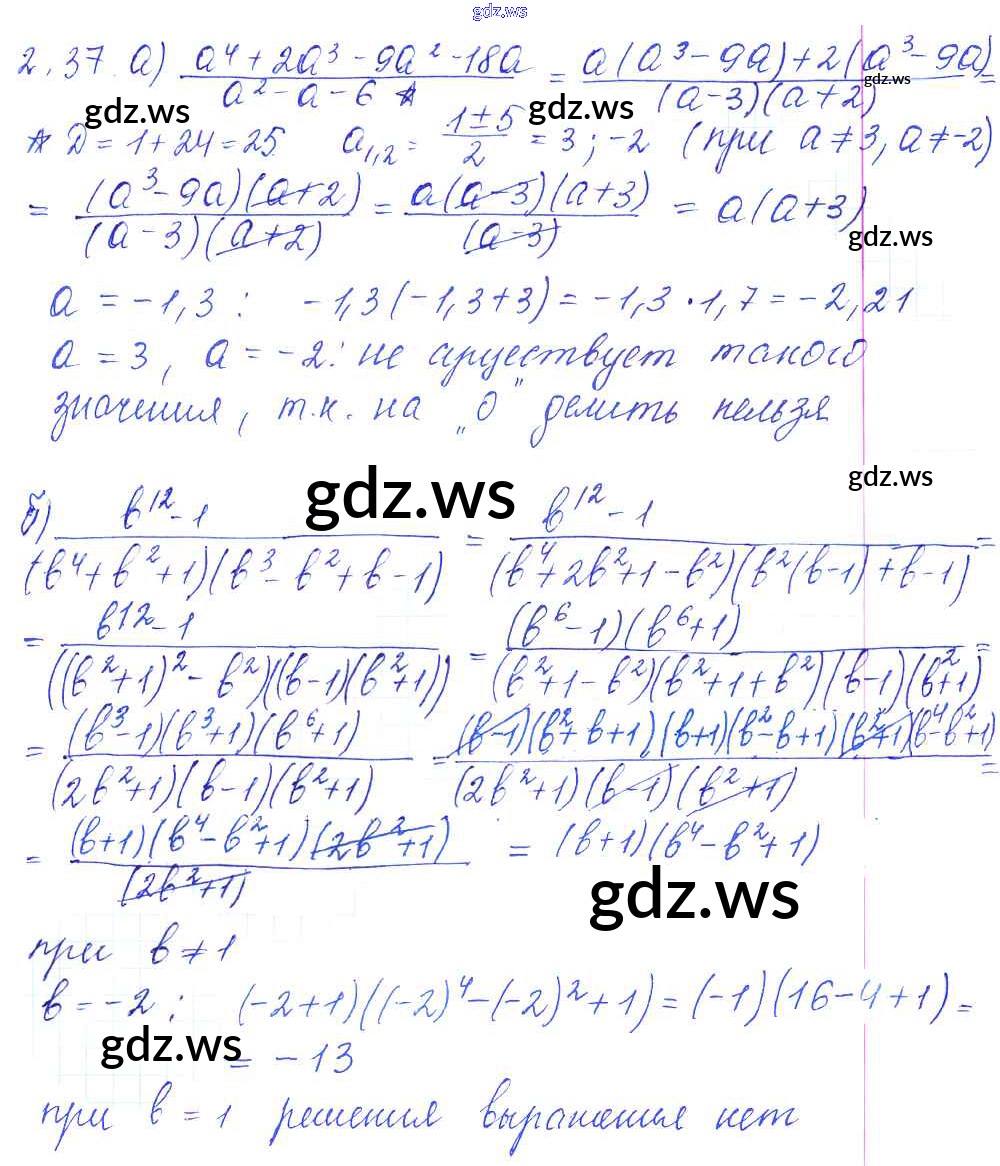 gdz.ws
2.37 а) (a⁴ + 2a³ - 9a² - 18a)/(a² - a - 6) * = (a(a³ - 9a) + 2(a³ - 9a))/((a-3)(a+2)) =
gdz.ws
gdz.ws
gdz.ws
* D = 1 + 24 = 25 a₁,₂ = (1 ± 5)/2 = 3; -2 (при a ≠ 3, a ≠ -2)
= ((a³ - 9a)(a+2))/((a-3)(a+2)) = (a(a-3)(a+3))/((a-3)) = a(a+3)
gdz.ws
a = -1,3 : -1,3(-1,3+3) = -1,3 · 1,7 = -2,21
a = 3, a = -2: не существует такого
значения, т.к. на „0" делить нельзя
gdz.ws
gdz.ws
б) (b¹² - 1)/((b⁴ + b² + 1)(b³ - b² + b - 1)) = (b¹² - 1)/((b⁴ + 2b² + 1 - b²)(b²(b-1) + b - 1)) =
= (b¹² - 1)/(((b²+1)² - b²)((b-1)(b²+1))) = ((b⁶ - 1)(b⁶ + 1))/((b² + 1 - b²)(b² + 1 + b²)(b-1)(b²+1)) =
= ((b³-1)(b³+1)(b⁶+1))/((2b²+1)(b-1)(b²+1)) = ((b-1)(b²+b+1)(b+1)(b²-b+1)(b²+1)(b⁴-b²+1))/((2b²+1)(b-1)(b²+1)) =
= ((b+1)(b⁴-b²+1)(2b²+1))/((2b²+1)) = (b+1)(b⁴-b²+1)
gdz.ws
при b ≠ 1
b = -2; (-2+1)((-2)⁴-(-2)²+1) = (-1)(16-4+1) =
gdz.ws
= -13
при b = 1 решения выражения нет